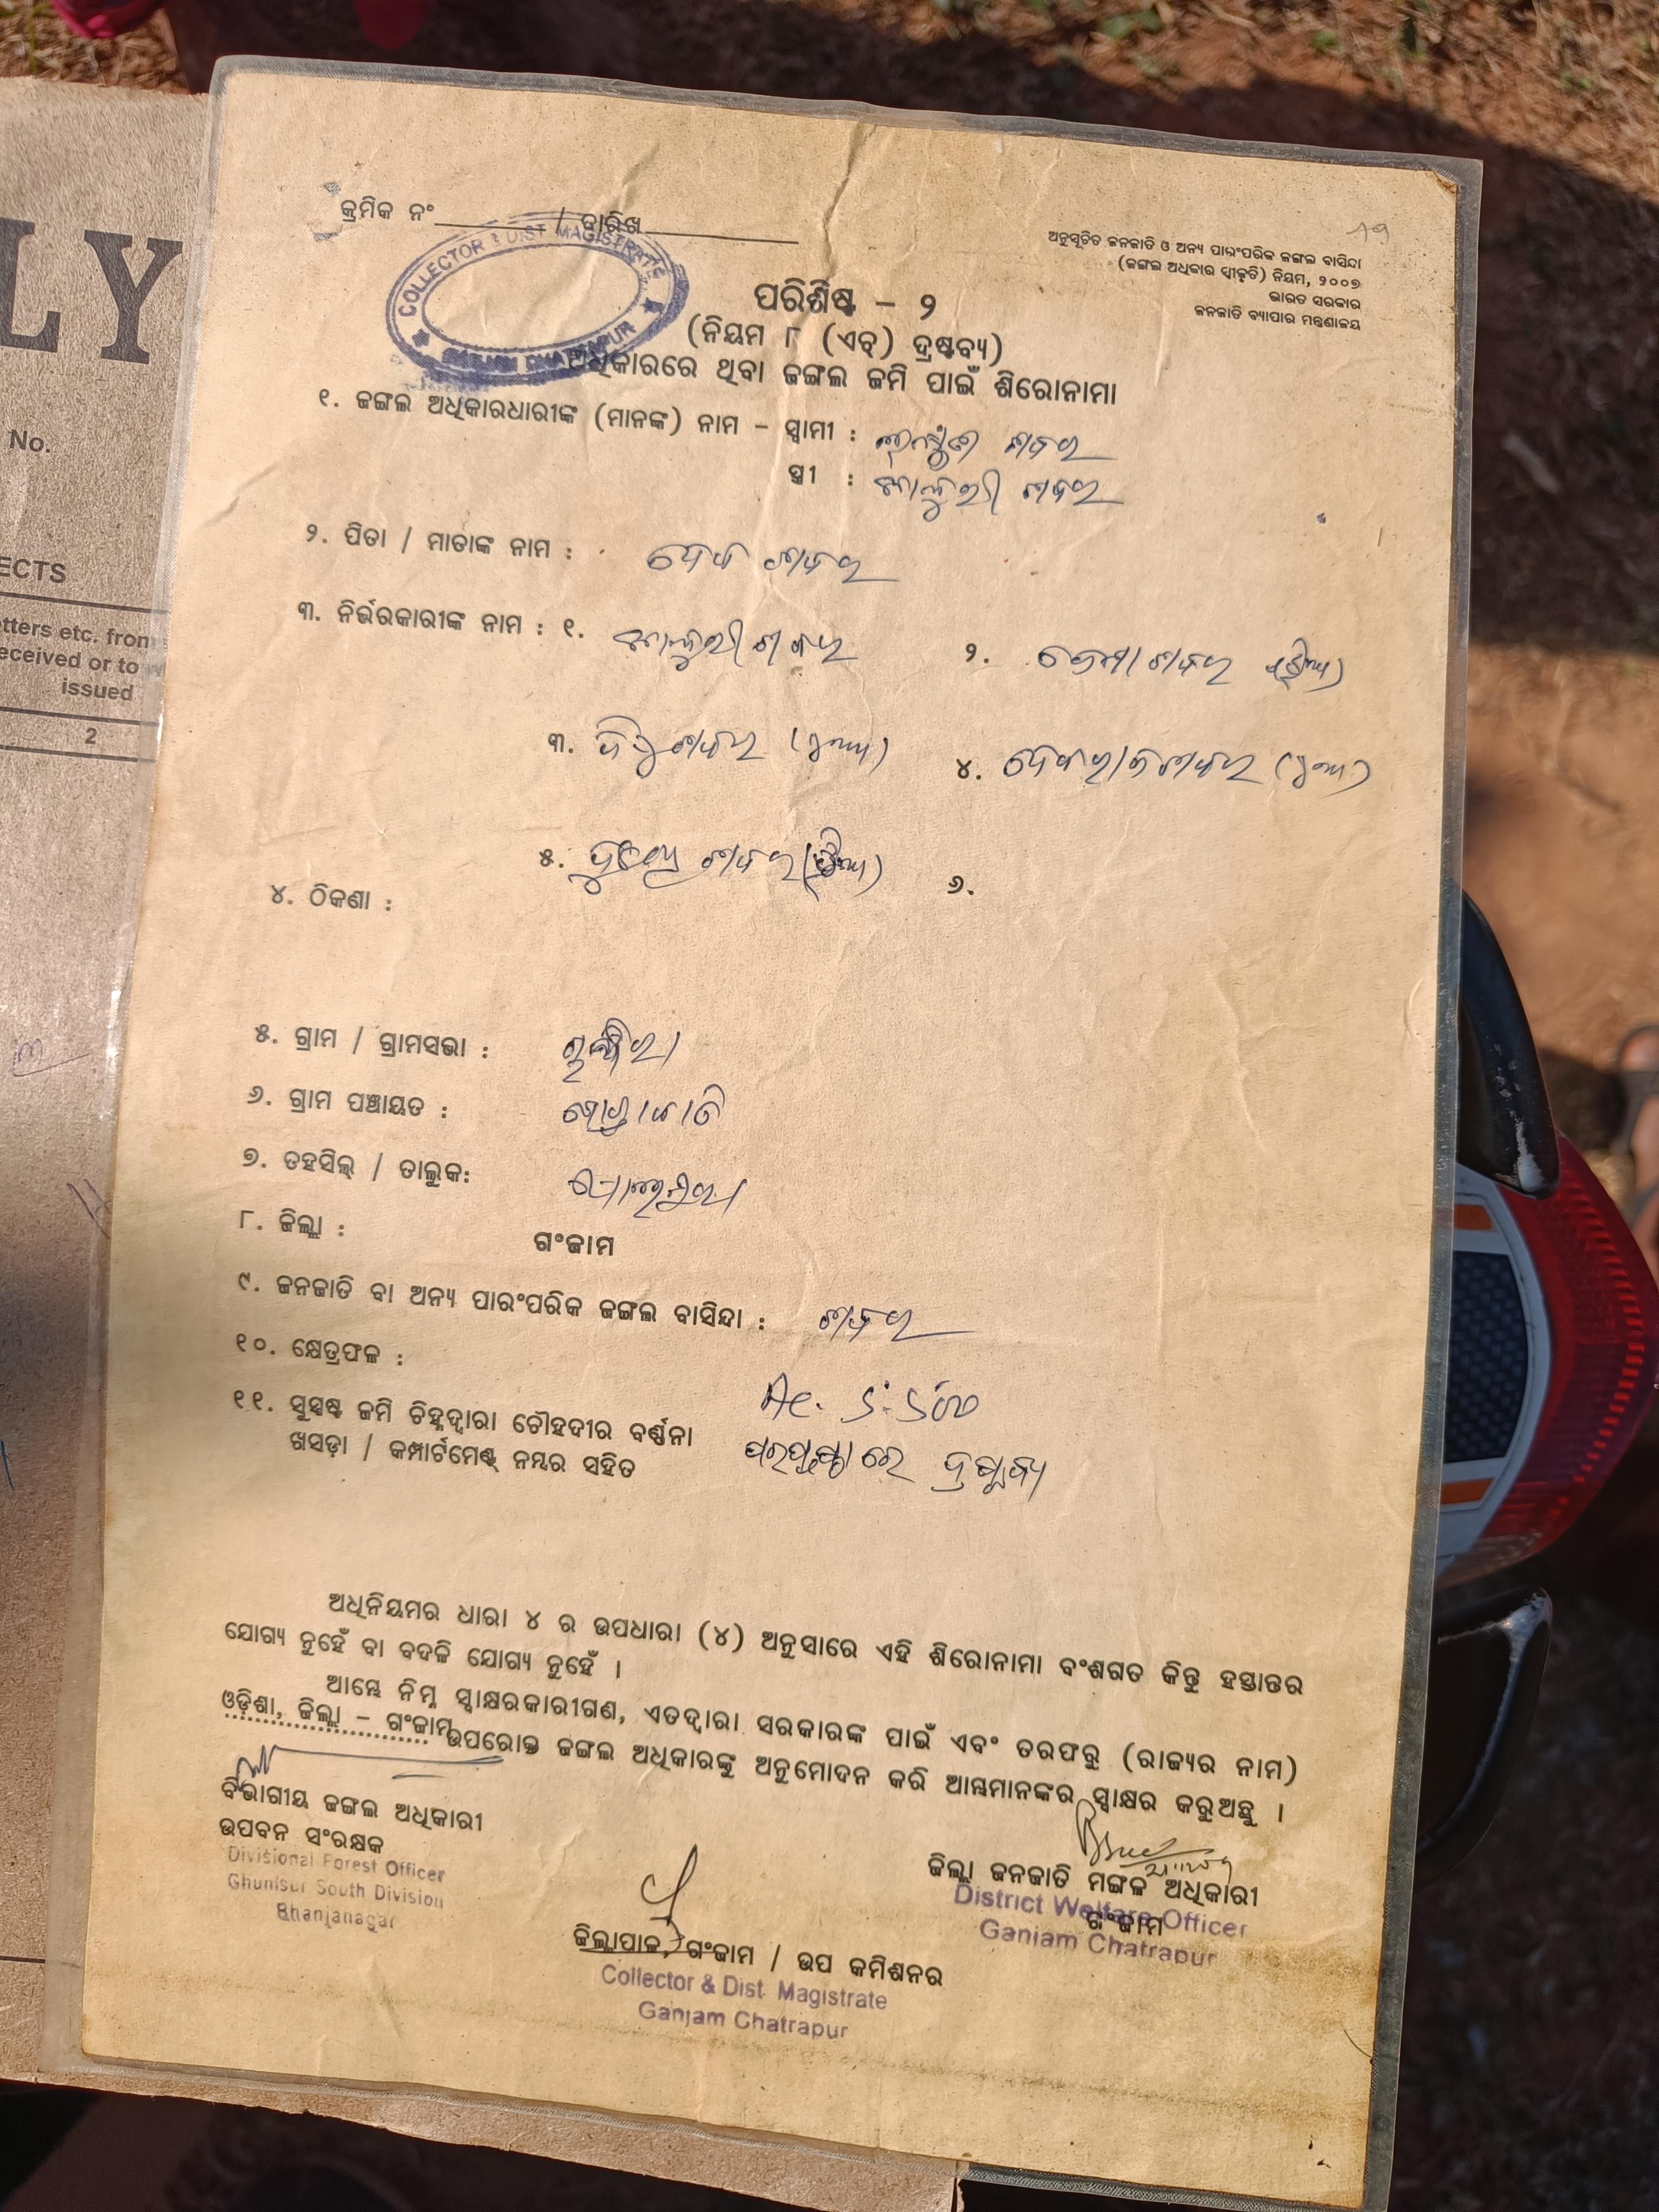 କ୍ରମିକ ନଂ / ତାରିଖ
COLLECTOR & DIST MAGISTRATE
GANJAM CHATRAPUR
ଅନୁସୂଚିତ ଜନଜାତି ଓ ଅନ୍ୟ ପାରଂପରିକ ଜଙ୍ଗଲ ବାସିନ୍ଦା
(ଜଙ୍ଗଲ ଅଧିକାର ସ୍ୱୀକୃତି) ନିୟମ, ୨୦୦୭
ଭାରତ ସରକାର
ଜନଜାତି ବ୍ୟାପାର ମନ୍ତ୍ରଣାଳୟ
ପରିଶିଷ୍ଟ – ୨
(ନିୟମ ୮ (ଏଚ୍) ଦ୍ରଷ୍ଟବ୍ୟ)
ଅଧିକାରରେ ଥିବା ଜଙ୍ଗଲ ଜମି ପାଇଁ ଶିରୋନାମା
୧. ଜଙ୍ଗଲ ଅଧିକାରଧାରୀଙ୍କ (ମାନଙ୍କ) ନାମ – ସ୍ୱାମୀ : ଶବର
ସ୍ତ୍ରୀ : ଶବର
୨. ପିତା / ମାତାଙ୍କ ନାମ : ଶବର
୩. ନିର୍ଭରକାରୀଙ୍କ ନାମ : ୧. ଶବର ୨. ଶବର (ଝିଅ)
୩. ଶବର (ପୁଅ) ୪. ଦେବରାଜ ଶବର (ପୁଅ)
୫. ଶବର (ଝିଅ) ୬.
୪. ଠିକଣା :
୫. ଗ୍ରାମ / ଗ୍ରାମସଭା :
୬. ଗ୍ରାମ ପଞ୍ଚାୟତ :
୭. ତହସିଲ୍ / ତାଲୁକ:
୮. ଜିଲ୍ଲା : ଗଂଜାମ
୯. ଜନଜାତି ବା ଅନ୍ୟ ପାରଂପରିକ ଜଙ୍ଗଲ ବାସିନ୍ଦା : ଶବର
୧୦. କ୍ଷେତ୍ରଫଳ : Ac.
୧୧. ସୁସ୍ପଷ୍ଟ ଜମି ଚିହ୍ନଦ୍ୱାରା ଚୌହଦୀର ବର୍ଣ୍ଣନା
ଖସଡ଼ା / କମ୍ପାର୍ଟମେଣ୍ଟ୍ ନମ୍ବର ସହିତ ପରପୃଷ୍ଠାରେ ଦ୍ରଷ୍ଟବ୍ୟ
ଅଧିନିୟମର ଧାରା ୪ ର ଉପଧାରା (୪) ଅନୁସାରେ ଏହି ଶିରୋନାମା ବଂଶଗତ କିନ୍ତୁ ହସ୍ତାନ୍ତର
ଯୋଗ୍ୟ ନୁହେଁ ବା ବଦଳି ଯୋଗ୍ୟ ନୁହେଁ ।
ଆମ୍ଭେ ନିମ୍ନ ସ୍ୱାକ୍ଷରକାରୀଗଣ, ଏତଦ୍ୱାରା ସରକାରଙ୍କ ପାଇଁ ଏବଂ ତରଫରୁ (ରାଜ୍ୟର ନାମ)
ଓଡ଼ିଶା, ଜିଲ୍ଲା – ଗଂଜାମ ଉପରୋକ୍ତ ଜଙ୍ଗଲ ଅଧିକାରଙ୍କୁ ଅନୁମୋଦନ କରି ଆମ୍ଭମାନଙ୍କର ସ୍ୱାକ୍ଷର କରୁଅଛୁ ।
ବିଭାଗୀୟ ଜଙ୍ଗଲ ଅଧିକାରୀ
ଉପବନ ସଂରକ୍ଷକ
Divisional Forest Officer
Ghumsur South Division
Bhanjanagar
ଜିଲ୍ଲାପାଳ, ଗଂଜାମ / ଉପ କମିଶନର
Collector & Dist. Magistrate
Ganjam Chatrapur
ଜିଲ୍ଲା ଜନଜାତି ମଙ୍ଗଳ ଅଧିକାରୀ
ଗଂଜାମ
District Welfare Officer
Ganjam Chatrapur
LY
No.
ECTS
etters etc. from
eceived or to
issued
2